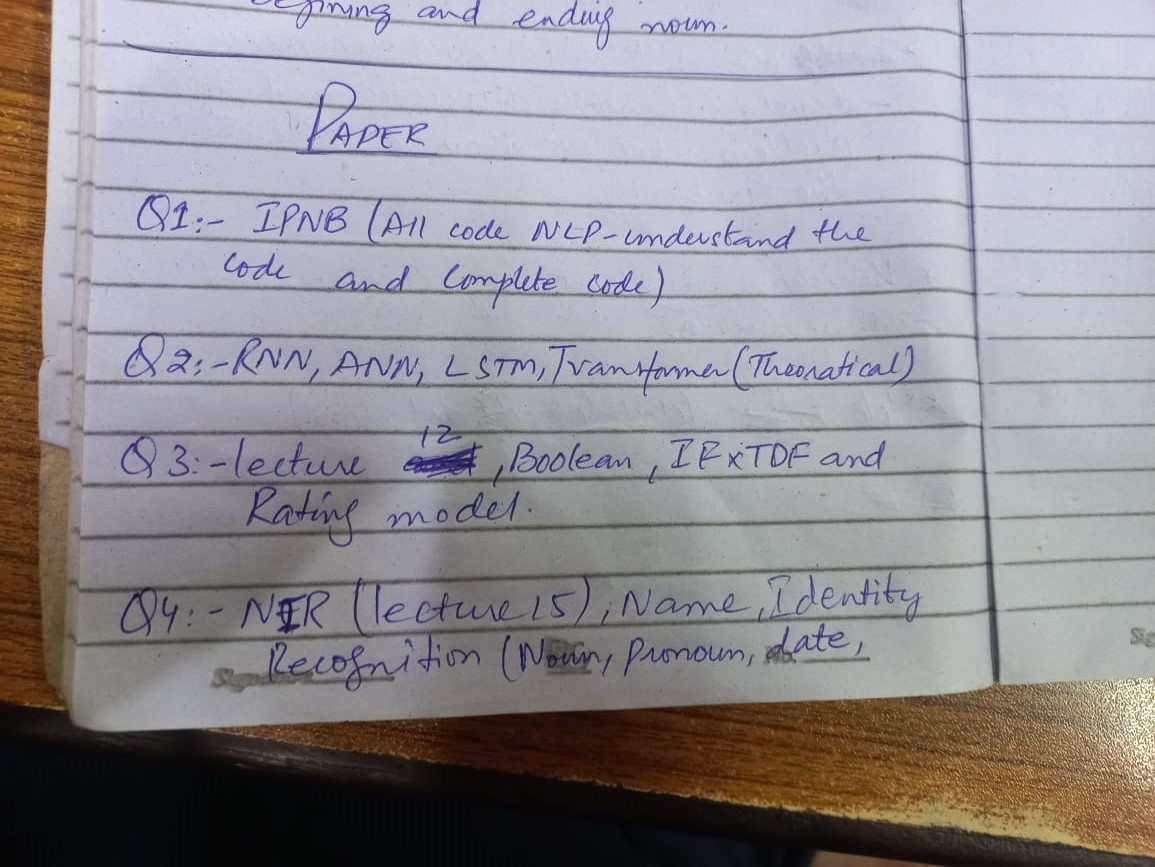 and ending noun.
PAPER
Q1:- IPNB (All code NLP-understand the
code and Complete code)
Q2:-RNN, ANN, LSTM, Transformer (Theoratical)
12
Q3:-lecture , Boolean, IFxTDF and
Rating model.
Q4:- NIR (lecture 15), Name, Identity
Recognition (Noun, Pronoun, date,